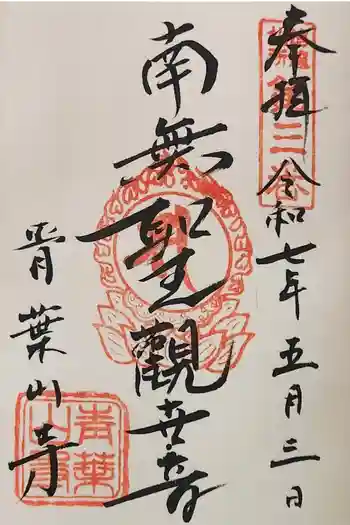 奉拝
令和七年五月三日
南無聖観世音
青葉山寺
青葉
山寺